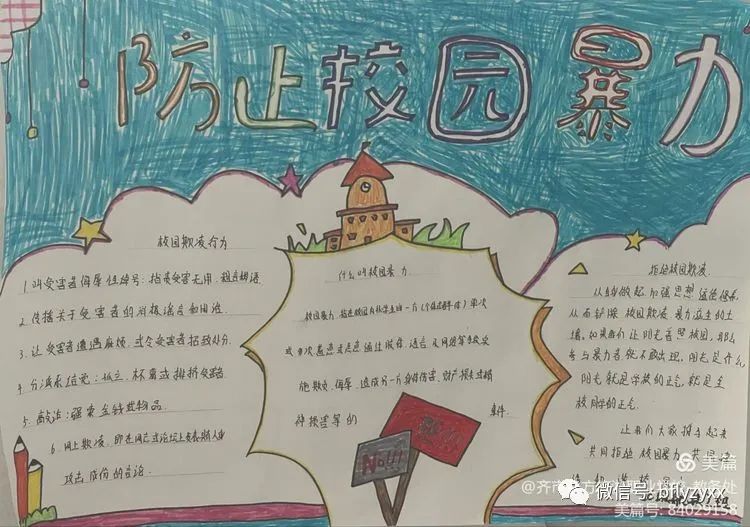 防止校园暴力
校园欺凌行为
1.叫受害者侮辱性绰号:指责受害无用、粗言秽语
2.传播关于受害者的消极谣言和闲话.
3.让受害者遭遇麻烦,或令受害者招致处分.
4.分派系结党:孤立、杯葛或排挤受害者
5.敲诈:强索金钱或物品
6.网上欺凌,即在网志或论坛上发表有人身
攻击成份的言论.
什么叫校园暴力
校园暴力,指在校园内外学生间一方(个体或群体)单次
或多次蓄意或恶意通过肢体、语言及网络等手段实
施欺负、侮辱、造成另一方身体伤害、财产损失或精
神损害等的 事件.
NO!!
拒绝校园欺凌
从自身做起,加强思想
从而铲除校园欺凌暴力滋生的土
壤。如果我们让阳光普照校园,那么
与暴力者就不敢出现。阳光是什么,
阳光就是学校的正气,就是全
校同学的正气.
让我们大家携手起来
共同拒绝校园暴力,共同
美篇
微信号:brlyzyxx
美篇号:84029158